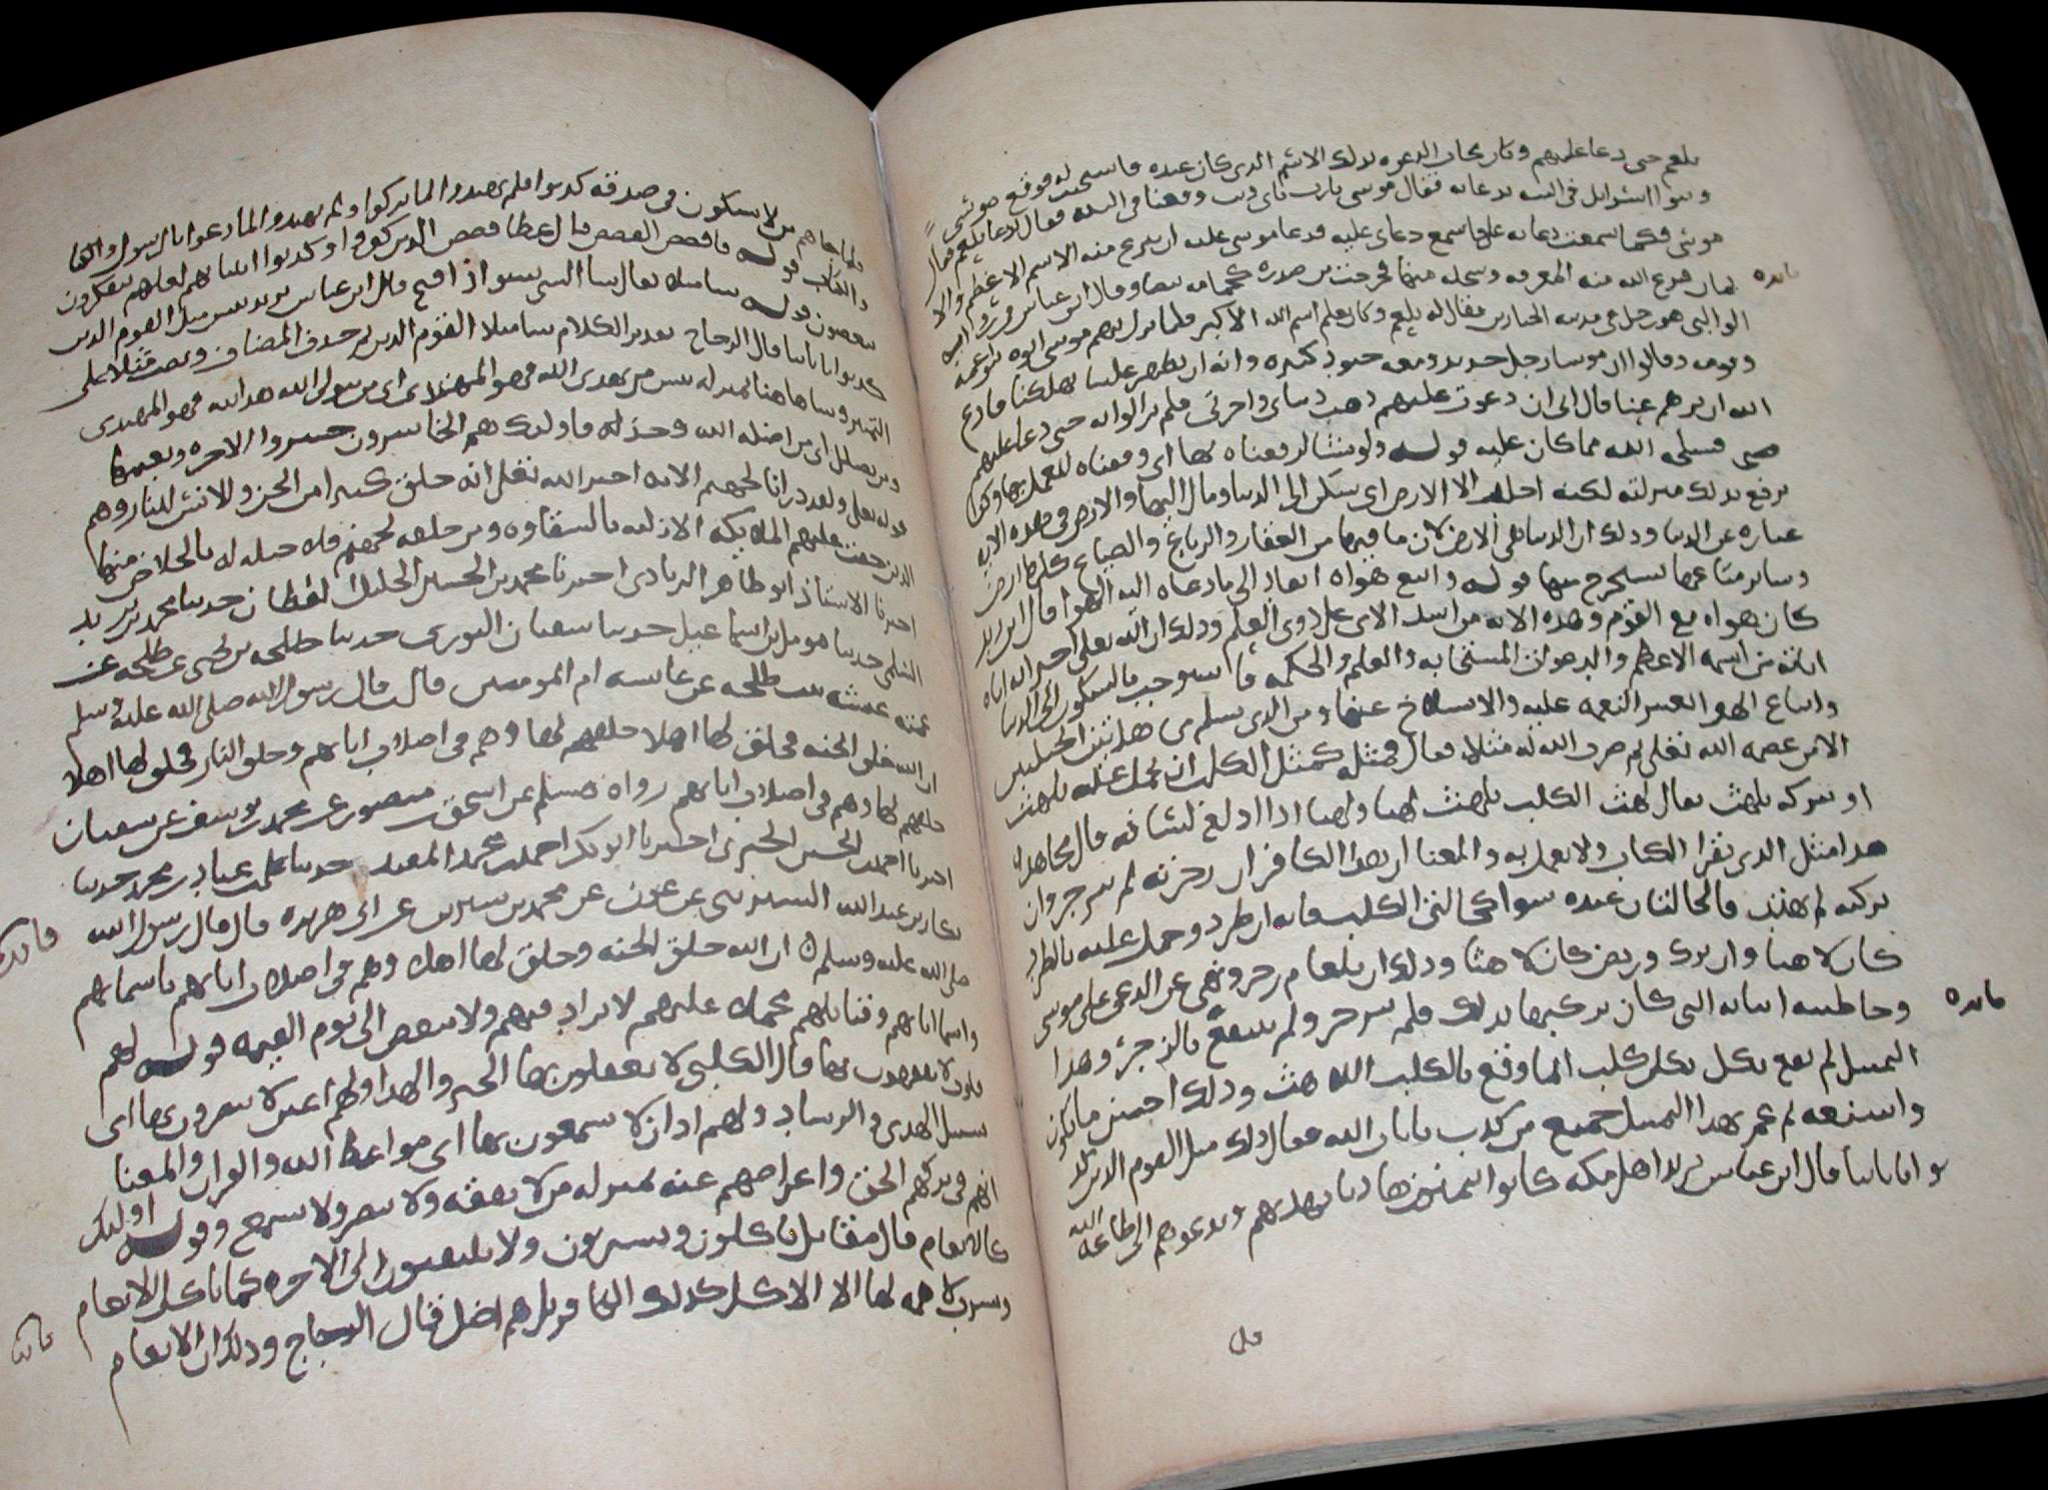 بلعم حتى دعا عليهم وكان مجاب الدعوه بذلك الاسم الذى كان عنده فاستجيب له فوقع موسى
وبنوا اسرائيل فى التيه بدعائه فقال موسى يارب باى ذنب وقعنا فى التيه فقال بدعا بلعم فقال
موسى فكما سمعت دعائه على فاسمع دعاى عليه فدعا موسى عليه ان ينزع منه الاسم الاعظم والا
يمان فنزع الله منه المعرفه وسلخه منها فخرجت من صدره كحمامه بيضا وقال ابن عباس فى روايه
الوالبى هو رجل من مدينه الجبارين يقال له بلعم وكان يعلم اسم الله الاكبر فلما نزل بهم موسى اتوه بنو عمه
وقومه وقالوا ان موسا رجل حديد ومعه جنود كثيره وانه ان يظهر علينا يهلكنا فادع
الله ان يردهم عنا قال انى ان دعوت عليهم ذهبت دنياى واخرتى فلم يزالوا به حتى دعا عليهم
فسلخه الله مما كان عليه قوله ولو شئنا لرفعناه بها اى وفقناه للعمل بها وكنا
نرفع بذلك منزلته لكنه اخلد الى الارض اى سكن الى الدنيا ومال اليها والارض فى هذه الايه
عباره عن الدنيا وذلك ان الدنيا هى الارض لان ما فيها من العقار والرباع والضياع كلها ارض
وساير متاعها يستخرج منها قوله واتبع هواه انقاد الى ما دعاه اليه الهوا قال ابن زيد
كان هواه مع القوم وهذه الايه من اشد الاى على ذوى العلم وذلك ان الله تعلى اخبر انه اتاه
اياته من اسمه الاعظم والدعوات المستجابه والعلم والحكمه فاستوجب بالسكون الى الدنيا
واتباع الهوا تغيير النعمه عليه والانسلاخ عنها ومن الذى يسلم من هاتين الخلتين
الا من عصمه الله تعلى ثم ضرب الله له مثلا فقال فمثله كمثل الكلب ان تحمل عليه يلهث
او تتركه يلهث يقال لهث الكلب يلهث لهثا ولهاثا اذا ادلع لسانه قال مجاهد
هذا مثل الذى يقرا الكتاب ولا يعمل به والمعنا ان هذا الكافر ان زجرته لم ينزجر وان
تركته لم يهتد فالحالتان عنده سوا كحالتى الكلب فانه ان طرد وحمل عليه بالطرد
كان لاهثا وان ترك وربض كان لاهثا وذلك ان بلعام زجر ونهى عن الدعى على موسى
وخاطبته اتانه التى كان يركبها بذلك فلم ينزجر ولم ينتفع بالزجر وهذا
التمثيل لم يقع بكل كلب انما وقع بالكلب اللاهث وذلك اخس ما يكون
واشنعه ثم عم بهذا التمثيل جميع من كذب بايات الله فقال ذلك مثل القوم الذين كذ
بوا باياتنا قال ابن عباس يريد اهل مكه كانوا يتمنون هاديا يهديهم ويدعوهم الى طاعه الله
فايده
فايده
فلما
فلما جاهم من لا يشكون فى صدقه كذبوا فلم يهتدوا لما تركوا ولم يهتدوا لما دعوا بالرسول والكتاب
والكتاب قوله فاقصص القصص قال عطا قصص الذين كفروا وكذبوا انبياهم لعلهم يتفكرون
يتعظون قوله ساء مثلا يقال ساء الشى يسوا اذا قبح قال ابن عباس يريد بئس مثل القوم الذين
كذبوا باياتنا قال الزجاج تقدير الكلام ساء مثلا مثل القوم الذين ثم حذف المضاف ونصب مثلا على
التمييز وسا هاهنا بمنزله بئس من يهدى الله فهو المهتدى اى من تولى الله هداه فهو المهتدى
ومن يضلل اى من اضله الله وخذله فاولئك هم الخاسرون خسروا الاخره ونعيمها
قوله تعلى ولقد ذرانا لجهنم الايه اخبر الله تعلى انه خلق كثيرا من الجن والانس للنار وهم
الذين حقت عليهم الكلمه الازليه بالشقاوه ومن خلقه لجهنم فلا حيله له بالخلاص منها
اخبرنا الاستاذ ابو طاهر الزيادى اخبرنا محمد بن الحسين الخليل القطان حدثنا محمد بن يزيد
السلمى حدثنا مومل بن اسماعيل حدثنا سفيان الثورى حدثنا طلحه بن يحيى عن طلحه عن
عمته عائشه بنت طلحه عن عايشه ام المومنين قالت قال رسول الله صلى الله عليه وسلم
ان الله خلق الجنه فخلق لها اهلا خلقهم لها وهم فى اصلاب اباهم وخلق النار فخلق لها اهلا
خلقهم لها وهم فى اصلاب اباهم رواه مسلم عن اسحق بن منصور عن محمد بن يوسف عن سفيان
اخبرنا احمد بن الحسن الحيرى اخبرنا ابو بكر احمد بن محمد المفيد حدثنا محمد بن عباد بن محمد حدثنا
بكار بن عبد الله السيرينى عن ابن عون عن محمد بن سيرين عن ابى هريره قال قال رسول الله
صلى الله عليه وسلم ان الله خلق الجنه وخلق لها اهل وهم فى اصلاب اباهم باسمايهم
واسما اباهم وقبايلهم مجمل عليهم لا يزاد فيهم ولا ينقص الى يوم القيمه قوله لهم
قلوب لا يفقهون بها قال الكلبى لا يعقلون بها الخير والهدا ولهم اعين لا يبصرون بها اى
سبيل الهدى والرشاد ولهم اذان لا يسمعون بها اى مواعظ الله والقران والمعنا
انهم فى تركهم الحق واعراضهم عنه بمنزله من لا يفقه ولا يبصر ولا يسمع وقوله اوليك
كالانعام قال مقاتل ياكلون ويشربون ولا يلتفتون الى الاخره كما تاكل الانعام
وتشرب لا همه لها الا الاكل كذلك الكافر بل هم اضل قال الزجاج وذلك ان الانعام
فايده
فايده